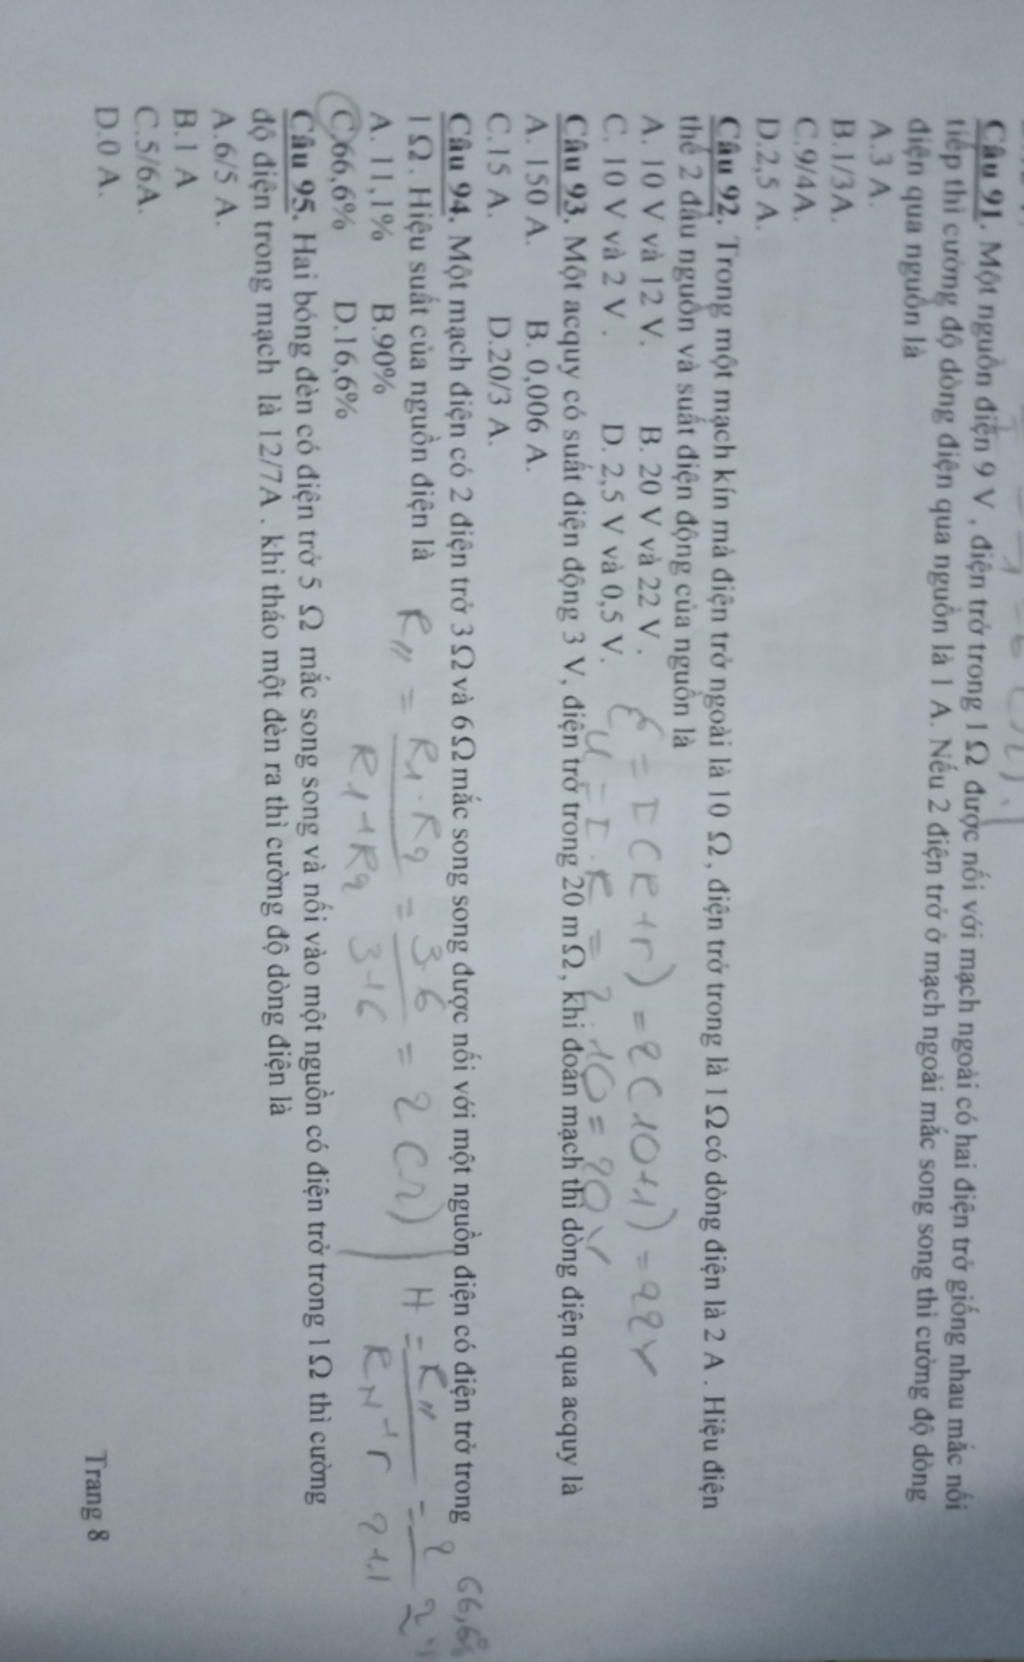 Câu 91. Một nguồn điện 9 V, điện trở trong 1 Ω được nối với mạch ngoài có hai điện trở giống nhau mắc nối
tiếp thì cường độ dòng điện qua nguồn là 1 A. Nếu 2 điện trở ở mạch ngoài mắc song song thì cường độ dòng
điện qua nguồn là
A.3 A.
B.1/3A.
C.9/4A.
D.2,5 A.
Câu 92. Trong một mạch kín mà điện trở ngoài là 10 Ω, điện trở trong là 1 Ω có dòng điện là 2 A. Hiệu điện
thế 2 đầu nguồn và suất điện động của nguồn là
A. 10 V và 12 V. B. 20 V và 22 V.
C. 10 V và 2 V. D. 2,5 V và 0,5 V.
ℰ = I(R+r) = 2(10+1) = 22V
U = I.R = 2.10 = 20V
Câu 93. Một acquy có suất điện động 3 V, điện trở trong 20 mΩ, khi đoản mạch thì dòng điện qua acquy là
A. 150 A. B. 0,006 A.
C.15 A. D.20/3 A.
Câu 94. Một mạch điện có 2 điện trở 3Ω và 6Ω mắc song song được nối với một nguồn điện có điện trở trong
1Ω. Hiệu suất của nguồn điện là
A. 11,1% B.90%
C.66,6% D.16,6%
R// = R1.R2 / R1+R2 = 3.6 / 3+6 = 2(Ω)
H = RN / RN+r = 2 / 2+1
66,6%
Câu 95. Hai bóng đèn có điện trở 5 Ω mắc song song và nối vào một nguồn có điện trở trong 1 Ω thì cường
độ điện trong mạch là 12/7A. khi tháo một đèn ra thì cường độ dòng điện là
A.6/5 A.
B.1 A
C.5/6A.
D.0 A.
Trang 8